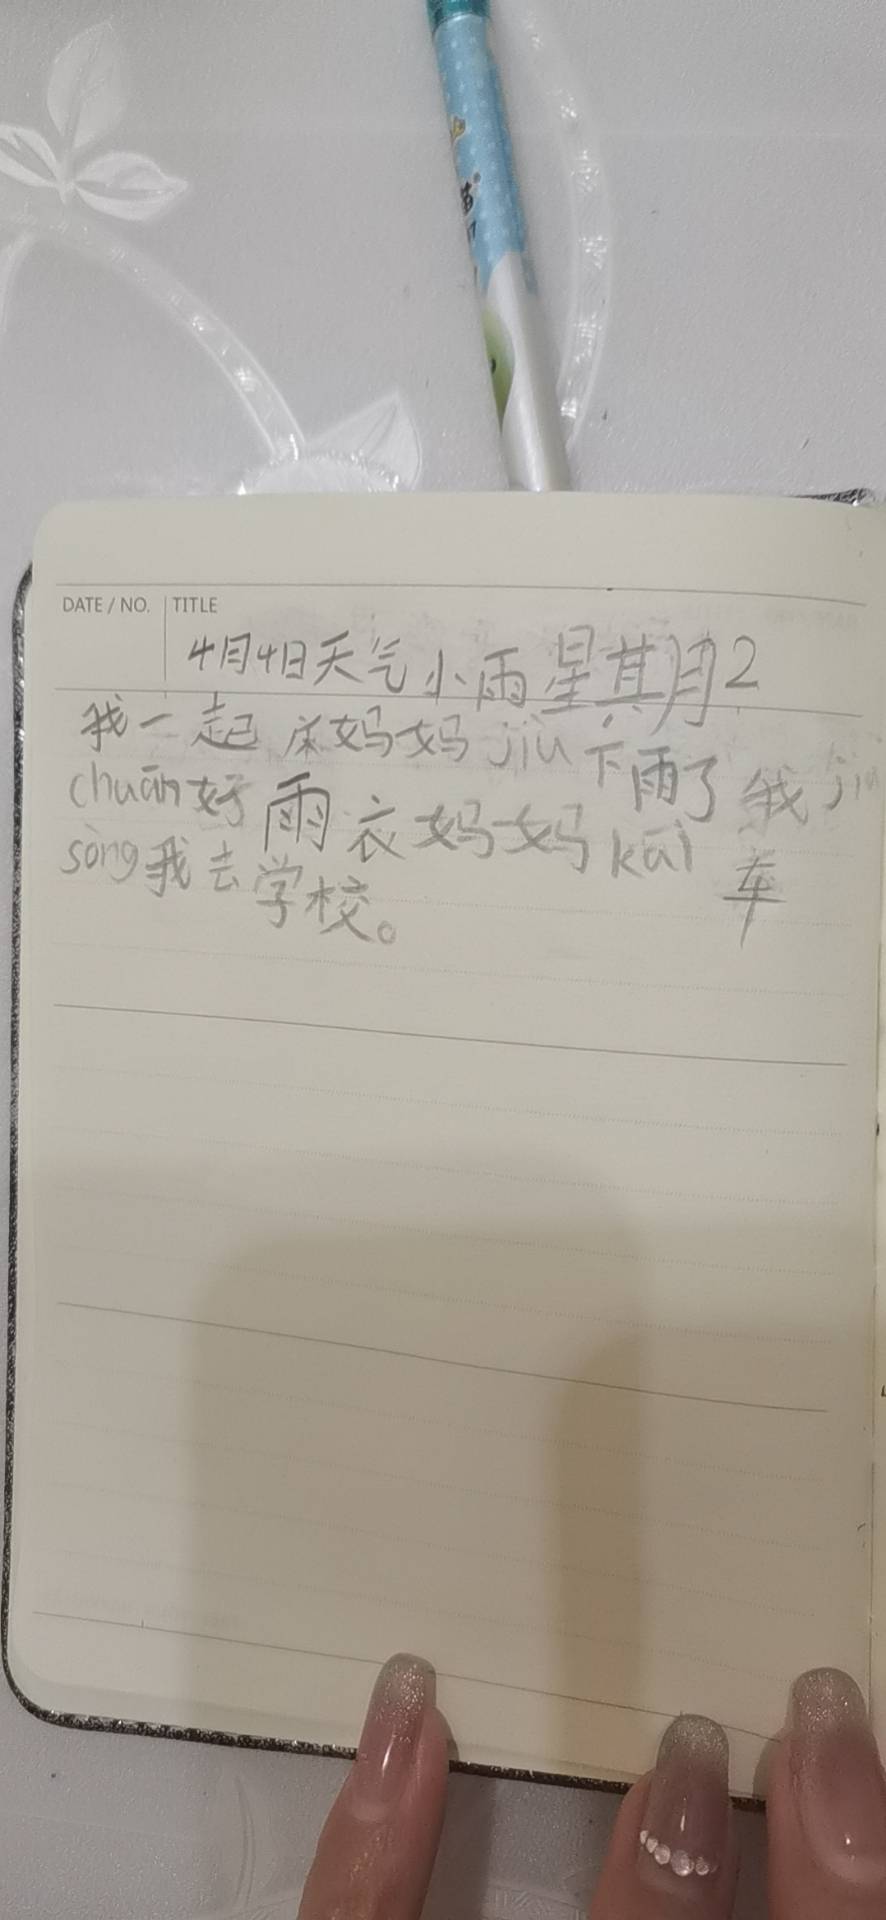 DATE / NO. TITLE
4月4日天气小雨星其月2
我一起床妈妈jiù下雨了我jiù
chuān好雨衣妈妈kāi车
sòng我去学校。